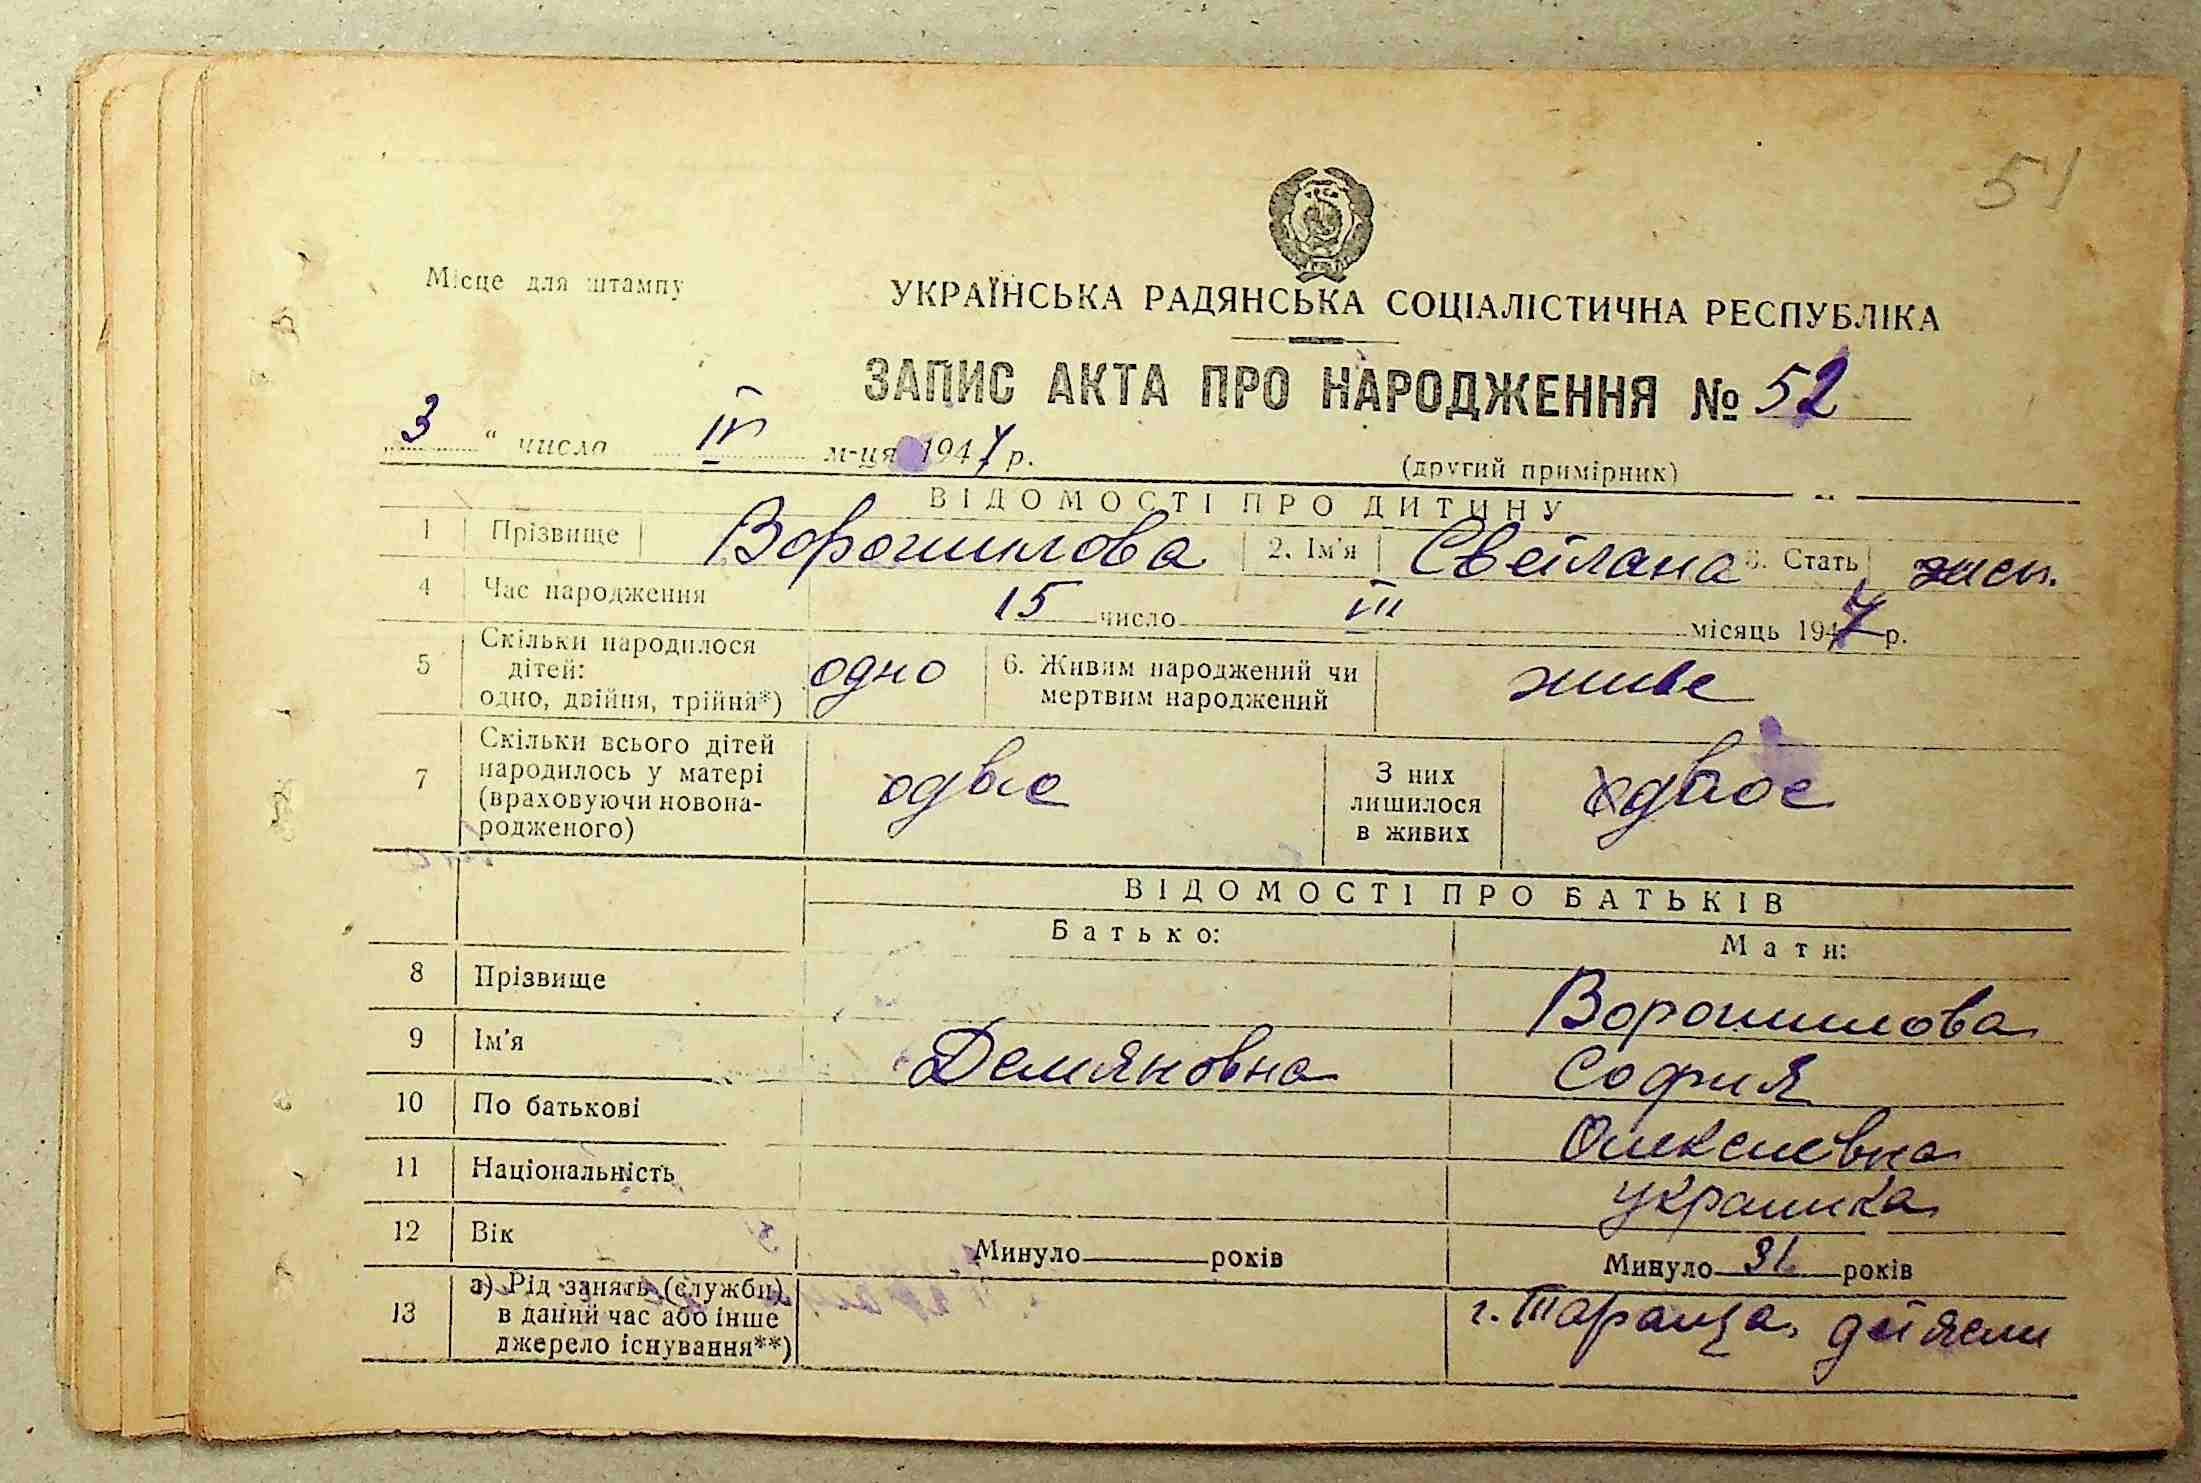 51
Місце для штампу
УКРАЇНСЬКА РАДЯНСЬКА СОЦІАЛІСТИЧНА РЕСПУБЛІКА
ЗАПИС АКТА ПРО НАРОДЖЕННЯ № 52
3 " число IV м-ця 1947 р.
(другий примірник)
ВІДОМОСТІ ПРО ДИТИНУ
1 Прізвище Ворошилова 2. Ім'я Светлана 3. Стать жен.
4 Час народження 15 число III місяць 1947 р.
5 Скільки народилося дітей: одно, двійня, трійня*) одно 6. Живим народжений чи мертвим народжений живе
7 Скільки всього дітей народилось у матері (враховуючи новонародженого) З них лишилося в живих двоє
ВІДОМОСТІ ПРО БАТЬКІВ
Батько: Мати:
8 Прізвище Ворошилова
9 Ім'я Демяновна София
10 По батькові Олексиевна
11 Національність украинка
12 Вік Минуло років Минуло 31 років
13 а) Рід занять (служби) в даний час або інше джерело існування**) г. Тараща, дет ясли